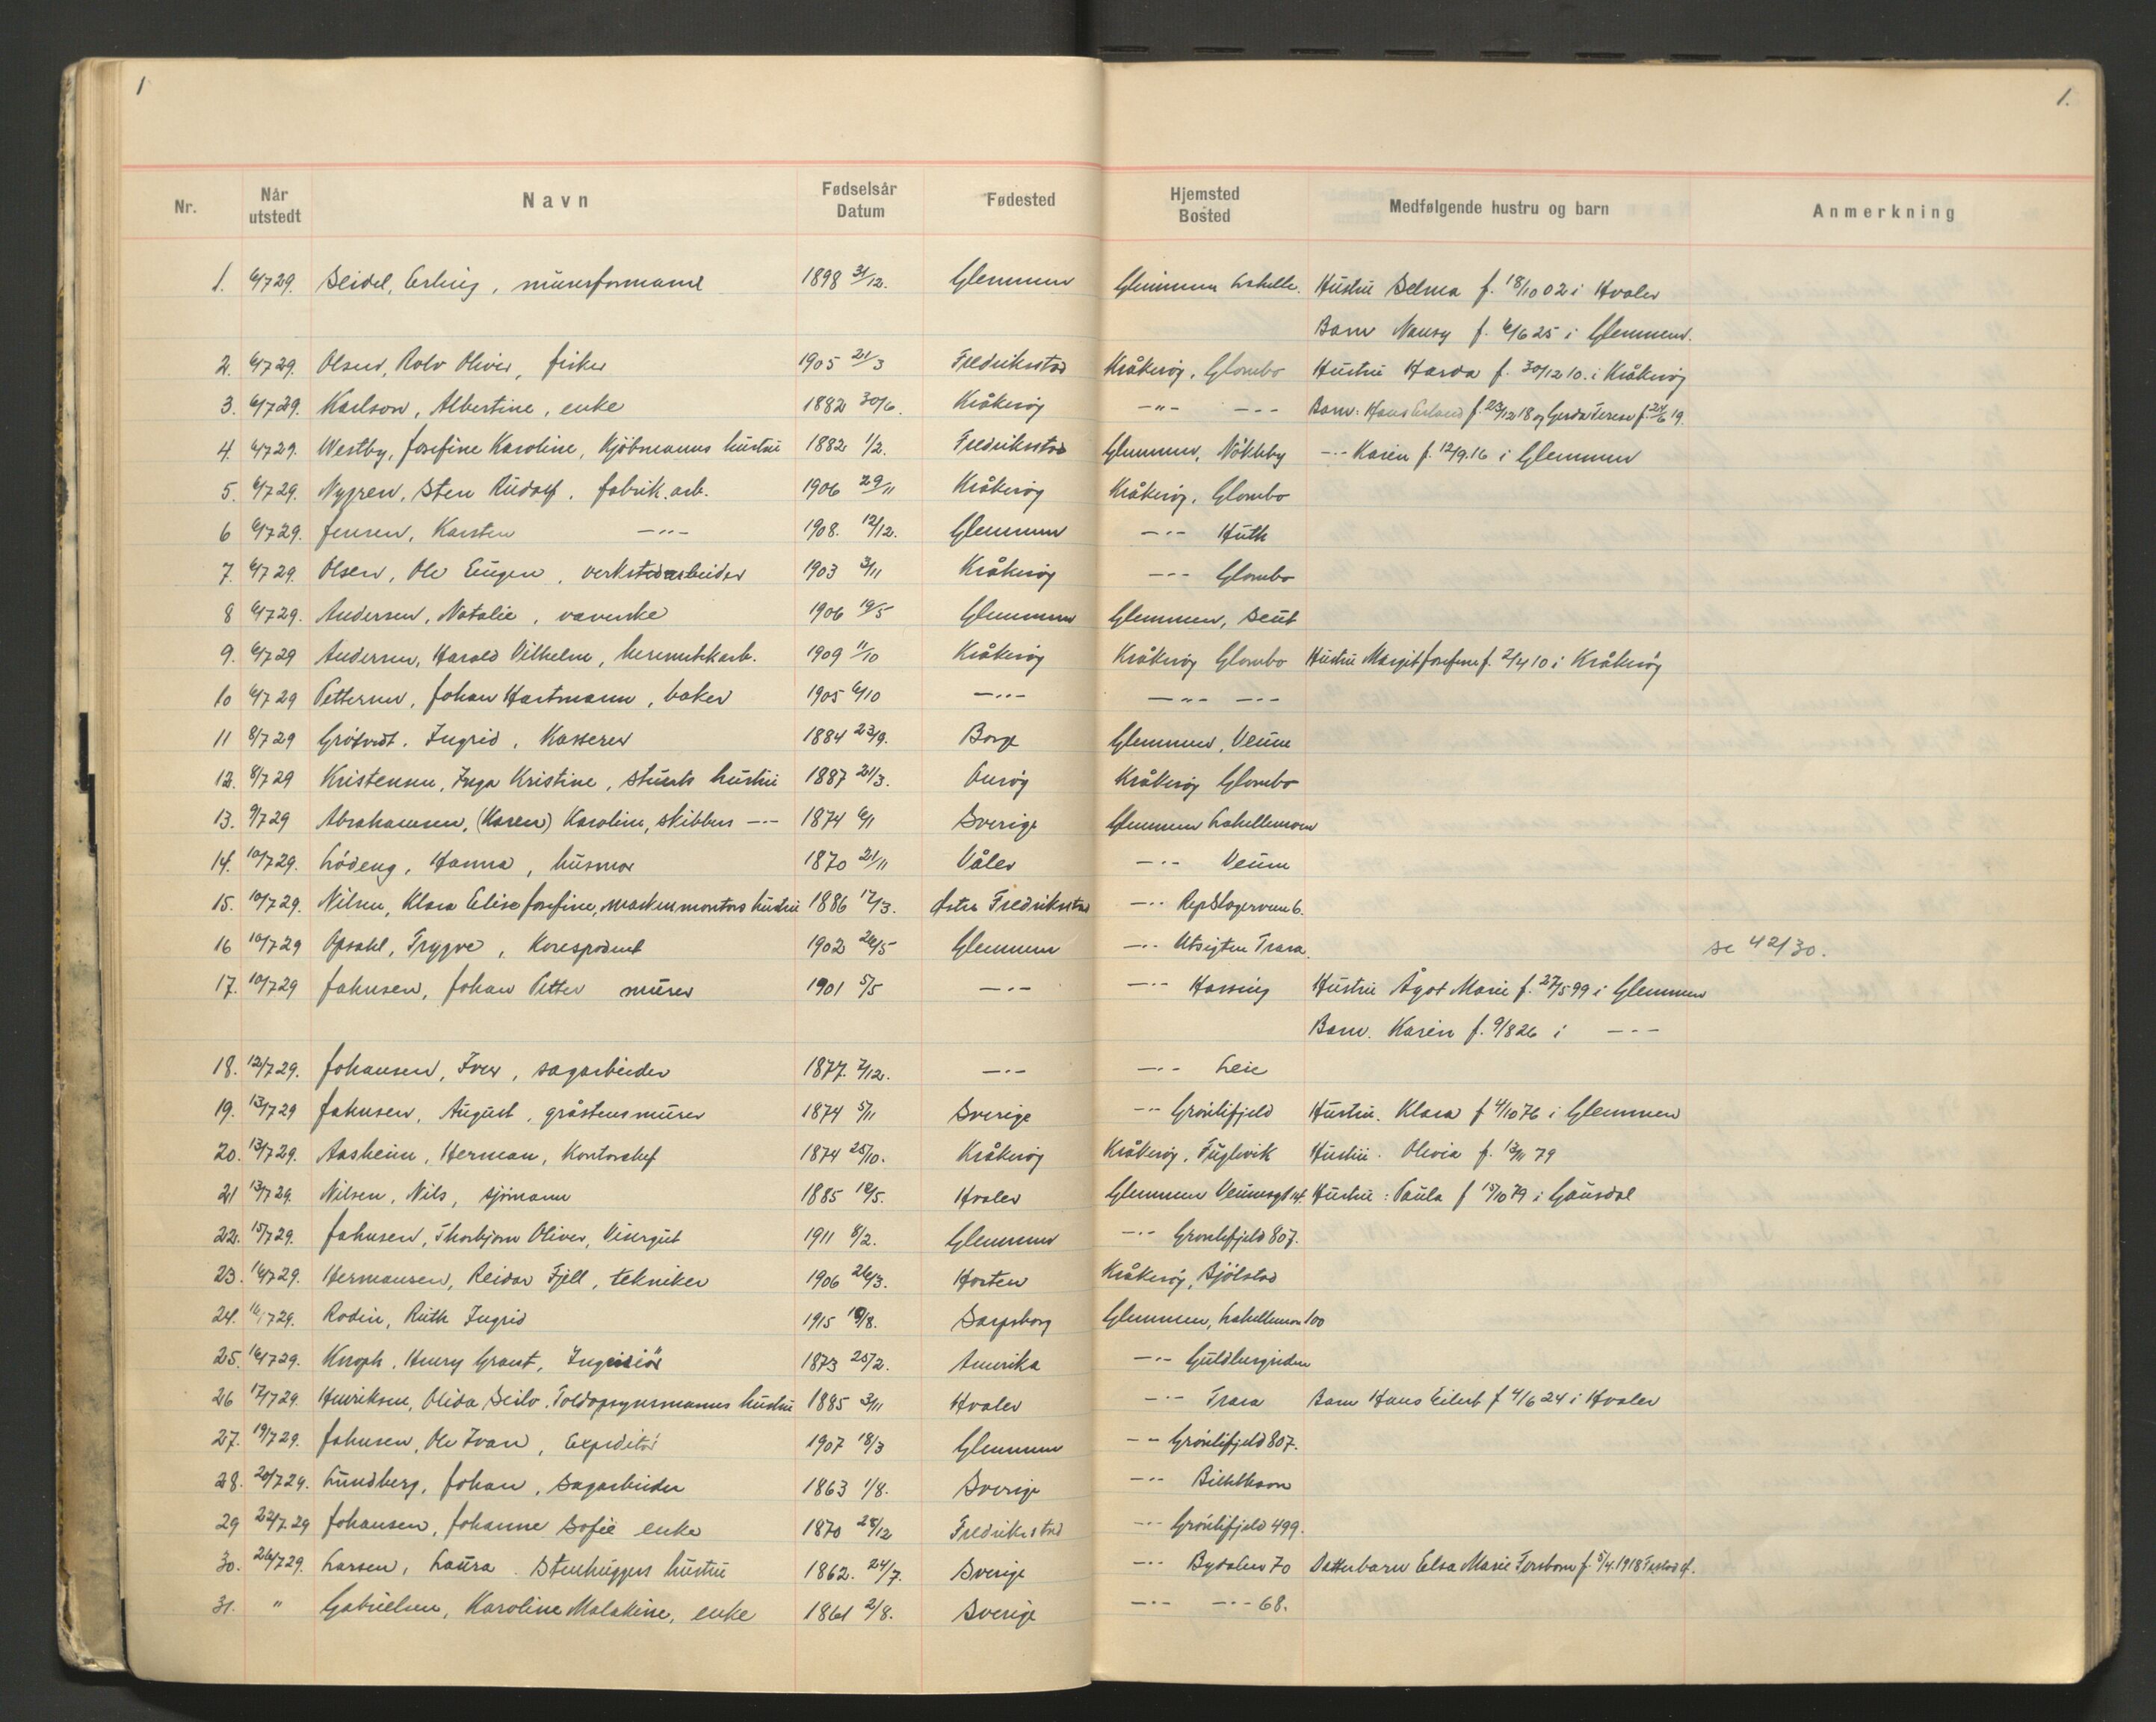 1
1.
Nr. Når utstedt Navn Fødselsår Datum Fødested Hjemsted Bosted Medfølgende hustru og barn Anmerkning
1. 6/7 29. Seidel, Erling, murerformann 1898 31/12. Glemmen Glemmen Lahelle. Hustru Selma f. 18/10 02 i Hvaler
Barn Nansy f. 6/6 25 i Glemmen.
2. 6/7 29. Olsen, Rolv Oliver, fisker 1905 21/3 Fredriksstad Kråkerøy, Glombo Hustru Harda f. 30/12 10. i Kråkerøy
3. 6/7 29. Karlson, Albertine, enke 1882 30/6. Kråkerøy -"- -"- Barn: Hans Erland f. 23/12 18 og Gerda Terese f. 24/6 19.
4. 6/7 29. Westby, Josefine Karoline, Kjöbmanns hustru 1882 1/2. Fredriksstad Glemmen, Nökleby -"- Karin f. 12/9.16 i Glemmen
5. 6/7 29. Nygren, Sten Rudolf, fabrik.arb. 1906 29/11 Kråkerøy Kråkerøy, Glombo
6 6/7 29. Jensen, Karsten -"- 1908. 12/12. Glemmen -"- Huth
7. 6/7 29. Olsen, Ole Eugen, verkstedarbeider 1903 3/11 Kråkerøy -"- Glombo
8 6/7 29. Andersen, Natalie, 1906 19/5 Glemmen Glemmen, Seut
9. 6/7 29 Andersen, Harald Vilhelm, hermetikkarb. 1909 11/10 Kråkerøy Kråkerøy Glombo Hustru Margit Josefine f. 2/4 10 i Kråkerøy
10 6/7 29 Pettersen, Johan Hartmann, baker 1905 6/10 -"- -"- -"-
11 8/7 29 Ingrid, Kasserer 1884 23/9. Borge Glemmen, Veum
12. 8/7 29 Kristensen, Inga Kristine, stuerts hustru 1887 21/3. Onsøy Kråkerøy Glombo
13. 9/7 29 Abrahamsen, (Karen) Karoline, skibbers -"- 1874 6/1 Sverige Glemmen Lahellemoen
14. 10/7 29. Lödeng, Hanna, husmor 1870 21/11 Våler -"- Veum
15. 10/7 29. Nilsen, Klara Elise Josefine, maskinmontørs hustru 1886 17/3. Østre Fredriksstad -"- Repslagerveien 6.
16 10/7 29 Opsahl, Trygve, Korespodent 1902 26/5 Glemmen -"- Utsigten Trara. se 42/30.
17. 10/7 29 Johnsen, Johan Petter murer 1901 5/5 -"- -"- Hassing Hustru Ågot Marie f. 27/5 99 i Glemmen
Barn. Karin f. 9/8 26 i -"-
18. 12/7 29. Johansen, Iver, sagarbeider 1877. 7/12. -"- -"- Leie
19. 13/7 29 Johnsen, August, gråstensmurer 1874 5/11 Sverige -"- Grönlifjeld Hustru. Klara f 4/10 76 i Glemmen
20. 13/7 29. Aasheim, Herman, Kontorchef 1874 25/10. Kråkerøy Kråkerøy, Fuglevik Hustru. Olivia f. 13/11 79
21 13/7 29. Nilsen, Nils, sjömann 1885 18/5. Hvaler Glemmen Veumsgt 14. Hustru: Paula f 15/10 79 i Gausdal
22. 15/7 29. Johnsen, Thorbjørn Oliver, Visergut 1911 8/2. Glemmen -"- Grønlifjeld 807.
23. 16/7 29. Hermansen, Reidar Fjell, tekniker 1906 26/3. Horten Kråkerøy, Bjölstad
24. 16/7 29. Rodin, Ruth Ingrid 1915 18/8. Sarpsborg Glemmen, Lahellemoen 100
25. 16/7 29. Knoph, Henry Grant, Ingeniør 1873 25/2. Amerika -"- Guldbergsiden
26 17/7 29. Henriksen, Olida Seilv. Toldopsynsmanns hustru 1885 3/11 Hvaler -"- Trara Barn Hans Eilert f 4/6 24 i Hvaler
27. 19/7 29. Johnsen, Ole Ivan, Expeditör 1907 18/3 Glemmen -"- Grönlifjeld 807.
28. 20/7 29. Lundberg, Johan, Sagarbeider 1863 1/8. Sverige -"-
29 22/7.29 Johansen, Johanne Sofie enke 1870 28/12 Fredriksstad -"- Grönlifjeld 499.
30. 26/7 29. Larsen, Laura. Stenhuggers hustru 1862. 24/7. Sverige -"- Bydalen 70 Datterbarn Elsa Marie f. 5/4.1918
31. " Gabrielsen, Karoline Malakine, enke 1861 2/8. Sverige -"- -"- 68.